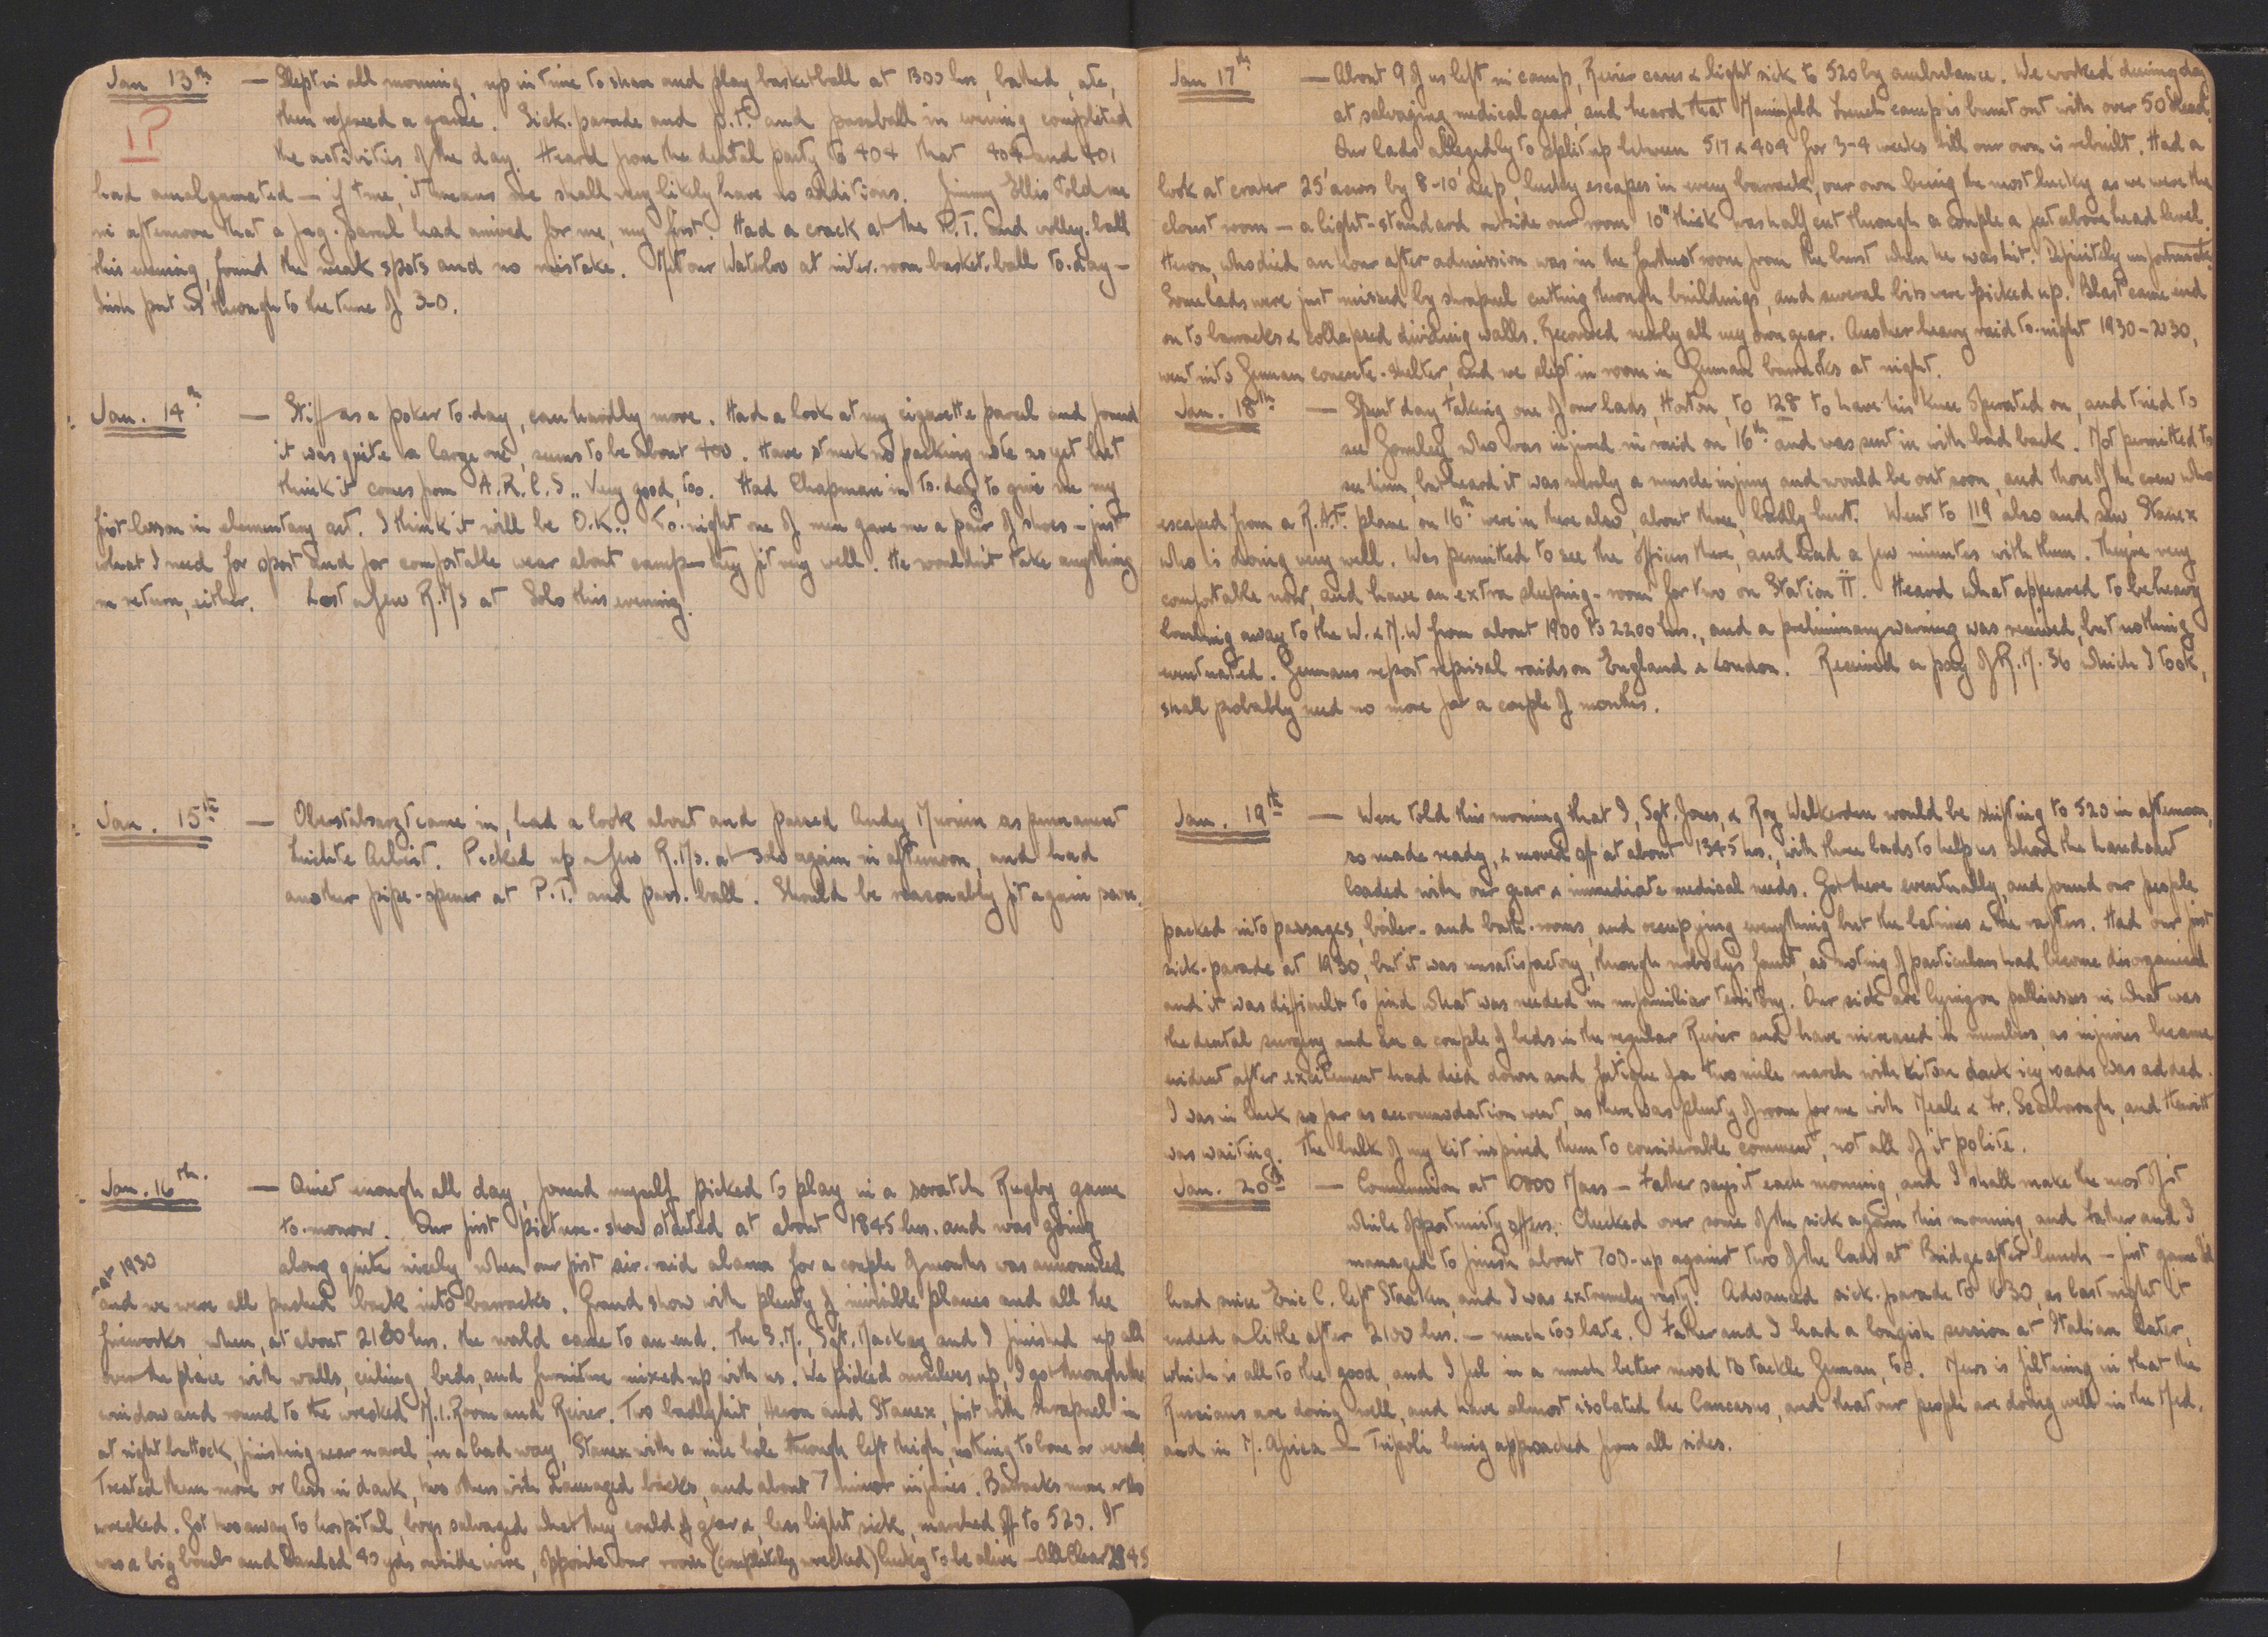 Jan 13th — Slept in all morning, up in time to shave and play basketball at 1300 hrs, bathed, ate,
1P
then refereed a game. Sick-parade and P.T. and passball in evening completed
the activities of the day. Heard from the dental party to 404 that 404 and 401
had amalgamated — if true, it means we shall very likely have no additions. Jimmy Ellis told me
in afternoon that a fag-parcel had arrived for me, my first. Had a crack at the P.T. and volley-ball
this evening, found the weak spots and no mistake. Met our Waterloo at inter-room basket-ball to-day —
Irish put us through to the tune of 3-0.
Jan. 14th — Stiff as a poker to-day, can hardly move. Had a look at my cigarette parcel and found
it was quite a large one, seems to be about 400. Have struck no packing note as yet but
think it comes from A.R.C.S.. Very good, too. Had Chapman in to-day to give me my
first lesson in elementary art. I think it will be O.K.. To-night one of men gave me a pair of shoes — just
what I need for sport and for comfortable wear about camp — they fit very well. He wouldn't take anything
in return, either. Lost a few R.Ms at Solo this evening.
Jan. 15th — Oberstabsarzt came in, had a look about and passed Andy as permanent
Leichte Arbeit. Picked up a few R.Ms. at solo again in afternoon, and had
another pipe-opener at P.T. and pass-ball. Should be reasonably fit again soon.
Jan. 16th. — Quiet enough all day, found myself picked to play in a scratch Rugby game
to-morrow. Our first picture-show started at about 1845 hrs. and was going
along quite nicely when our first air-raid alarm for a couple of months was announced
at 1930
and we were all pushed back into barracks. Grand show with plenty of invisible planes and all the
fireworks, when, at about hrs. the world came to an end. The S.M., Sgt. Mackay and I finished up all
over the place with walls, ceiling, beds, and furniture mixed up with us. We picked ourselves up, I got through the
window and round to the wrecked M.I. Room and Revier. Two badly hit, Heron and Stanex, first with shrapnel in
at right buttock, finishing near navel, in a bad way, Stanex with a nice hole through left thigh, nothing to bone or vessels.
Treated them more or less in dark, two others with damaged backs, and about 7 minor injuries. Barracks more or less
wrecked. Got two away to hospital, boys salvaged what they could of gear &, less light sick, marched off to 520. It
was a big bomb and landed 40 yds outside wire, opposite our room (completely wrecked) lucky to be alive — All Clear 2145
Jan 17th — About 9 of us left in camp, Revier cases & light sick to 520 by ambulance. We worked during day
at salvaging medical gear, and heard that French camp is burnt out with over 50 dead.
Our lads allegedly to split up between 517 & 404 for 3-4 weeks till our own is rebuilt. Had a
look at crater 25' across by 8-10' deep, lucky escapes in every barrack, our own being the most lucky as we were the
closest room — a light-standard outside our room 10" thick was half cut through a couple a feet above head level.
Heron, who died an hour after admission was in the furthest room from the burst when he was hit. Definitely unfortunate.
Some lads were just missed by shrapnel cutting through buildings, and several bits were picked up. Blast came end
on to barracks & collapsed dividing walls. Recovered nearly all my own gear. Another heavy raid to-night 1930-2030,
went into German concrete-shelter, and we slept in room in German barracks at night.
Jan. 18th — Spent day taking one of our lads, Horton, to 128 to have his knee operated on, and tried to
see who was injured in raid on 16th and was sent in with bad back. Not permitted to
see him, but heard it was merely a muscle injury and would be out soon, and those of the crew who
escaped from a R.A.F. plane on 16th were in there also, about three, badly hurt. Went to 119 also and saw Stanex
who is doing very well. Was permitted to see the officers there, and had a few minutes with them. They're very
comfortable now, and have an extra sleeping-room for two on Station II. Heard what appeared to be heavy
bombing away to the W. & N.W from about 1900 to 2200 hrs., and a preliminary warning was received, but nothing
eventuated. Germans report reprisal raids on England & London. Received a pay of R.M. 36 which I took,
shall probably need no more for a couple of months.
Jan. 19th — Were told this morning that I, Sgt. Jones, & Roy Walkerden would be shifting to 520 in afternoon,
so made ready, & moved off at about 1345 hrs., with three lads to help us shove the handcart
loaded with our gear & immediate medical needs. Got there eventually, and found our people
packed into passages, boiler- and bath-rooms, and occupying everything but the latrines & the rafters. Had our first
sick-parade at 1930, but it was unsatisfactory, though nobody's fault, as noting of particulars had become disorganised
and it was difficult to find what was needed in unfamiliar territory. Our sick are lying on palliasses in what was
the dental surgery and on a couple of beds in the regular Revier and have increased in numbers, as injuries became
evident after excitement had died down and fatigue for two mile march with kit on dark icy roads was added.
I was in luck so far as accommodation went, as there was plenty of room for me with Neale & Fr. Scarborough, and Hewitt
was waiting. The bulk of my kit inspired them to considerable comment, not all of it polite.
Jan. 20th — Communion at Mass — Father says it each morning, and I shall make the most of it
while opportunity offers. Checked over some of the sick again this morning, and Father and I
managed to finish about 700-up against two of the lads at Bridge after lunch — first game I'd
had since Eric C. left Staaken, and I was extremely rusty. Advanced sick-parade to 1630, as last night it
ended a little after 2100 hrs. — much too late. Father and I had a longish session at Italian later,
which is all to the good, and I feel in a much better mood to tackle German, too. News is filtering in that the
Russians are doing well, and have almost isolated the Caucasus, and that our people are doing well in the Med.
and in N. Africa — Tripoli being approached from all sides.